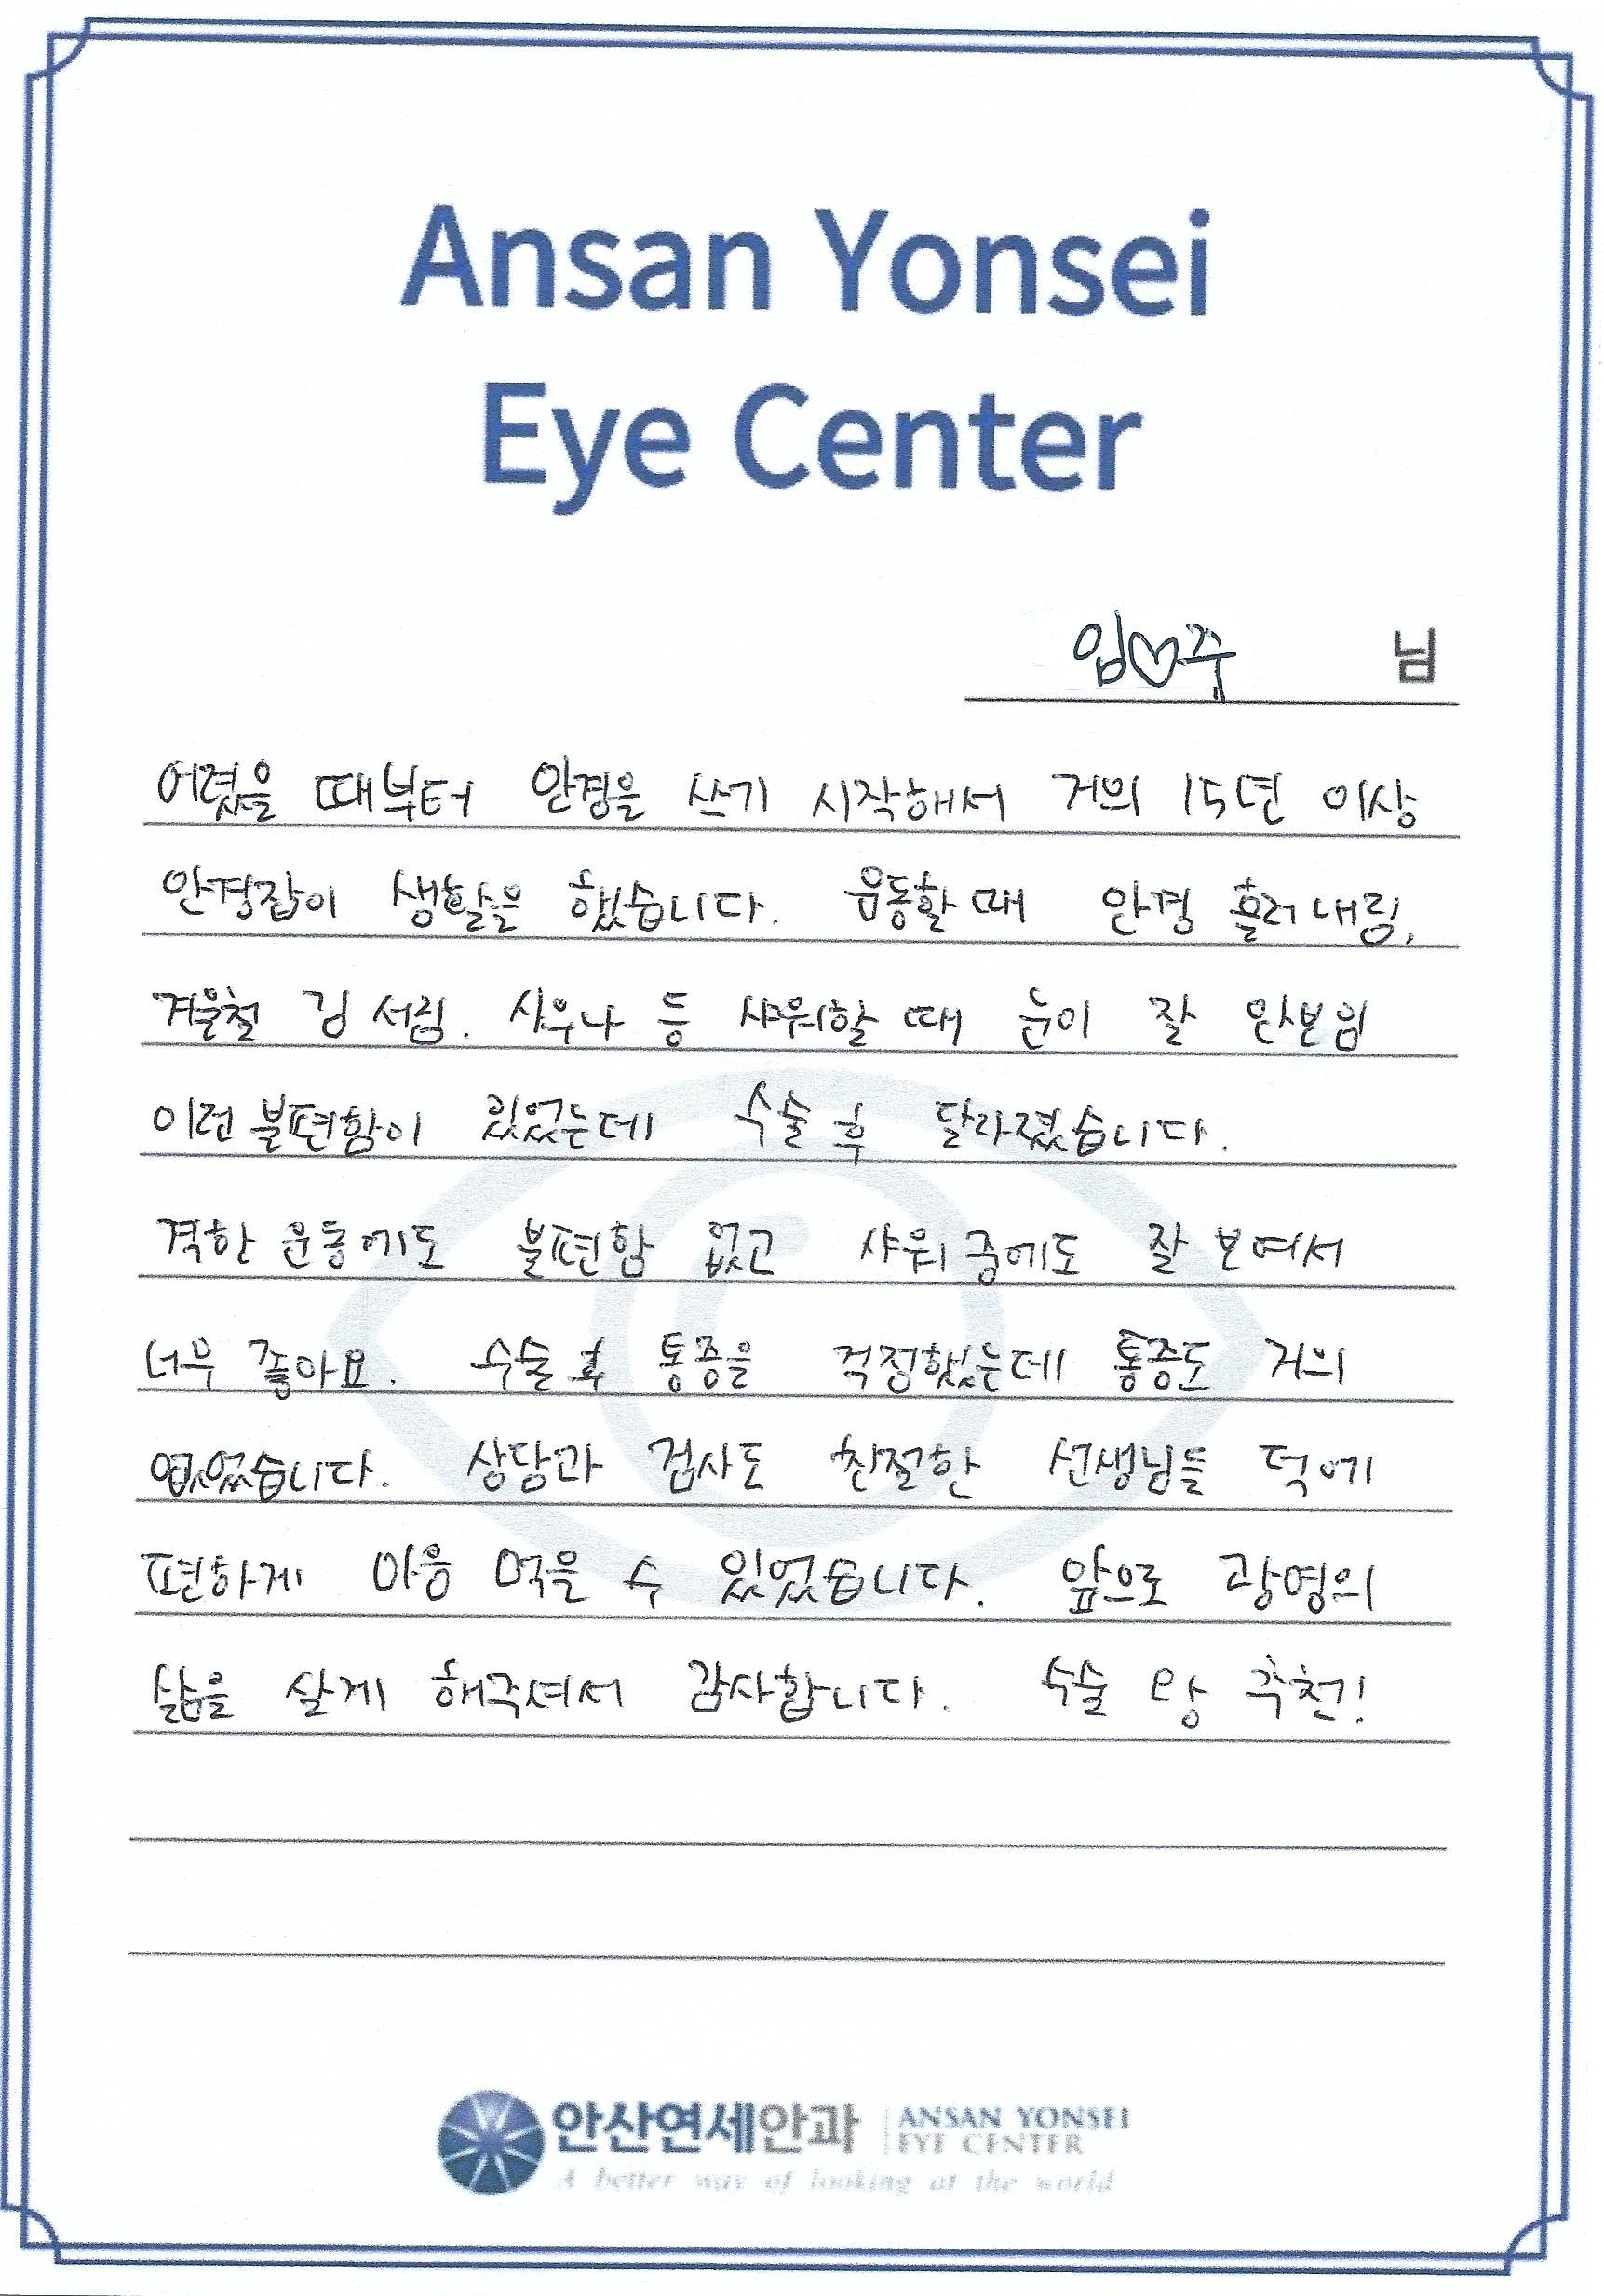 Ansan Yonsei
Eye Center
임♡주 님
어렸을 때부터 안경을 쓰기 시작해서 거의 15년 이상
안경잡이 생활을 했습니다. 운동할 때 안경 흘러내림,
겨울철 김 서림. 사우나 등 샤워할 때 눈이 잘 안보임
이런 불편함이 있었는데 수술 후 달라졌습니다.
격한 운동에도 불편함 없고 샤워 중에도 잘 보여서
너무 좋아요. 수술 후 통증을 걱정했는데 통증도 거의
없었습니다. 상담과 검사도 친절한 선생님들 덕에
편하게 마음 먹을 수 있었습니다. 앞으로 광명의
삶을 살게 해주셔서 감사합니다. 수술 왕 추천!
안산연세안과 ANSAN YONSEI
EYE CENTER
A better way of looking at the world